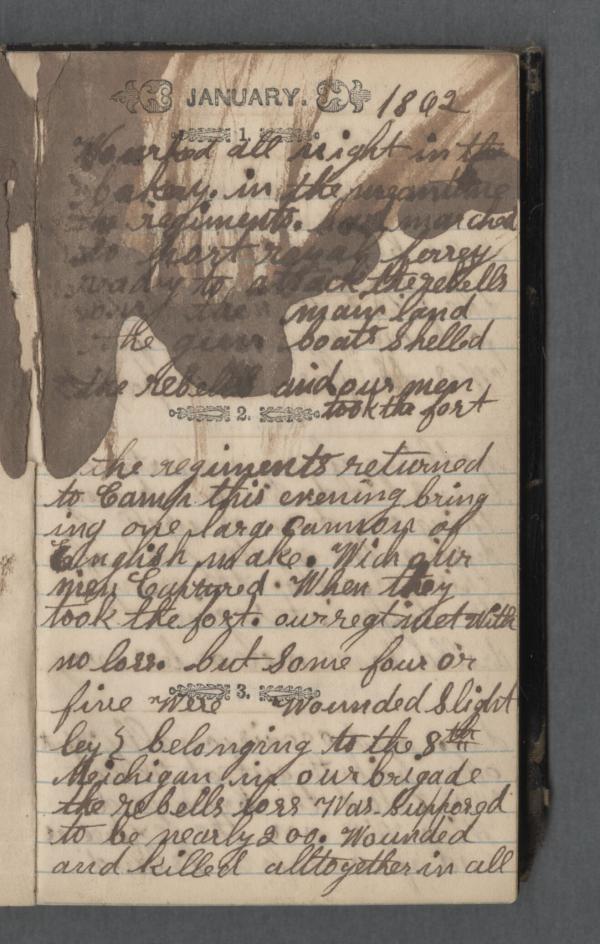 JANUARY. 1862
1.
Wourked all night in the
bakery. in the meantime
the regiments. had marched
to port royal ferrey
ready to attack the rebells
the main land
the gun boats shelled
the rebells and our men
took the fort
2.
the regiments returned
to Camp this evening bring
ing one large Cannon of
English make. Wich our
men Captured. When they
took the fort. our regt met With
no loss. but Some four or
3.
five Were Wounded Slight
ley belonging to the 8th
Meichigan in our brigade
the rebells loss Was Supposed
to be nearly 200. Wounded
and killed alltogether in all